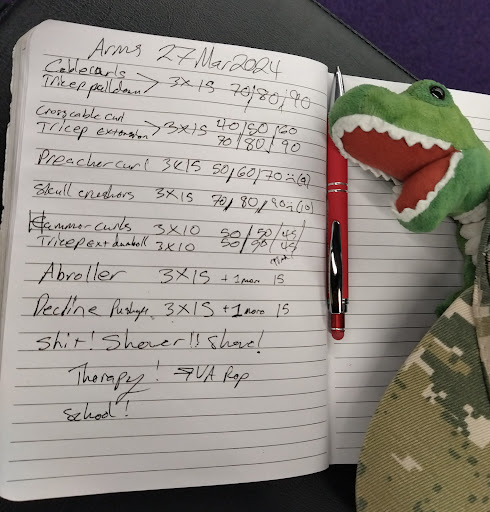 Arms 27 Mar 2024
Cable curls
Tricep pulldown > 3X15 70/80/90
Cross cable curl
Tricep extension > 3X15 40/50/60
70/80/90
Preacher curl 3X15 50/60/70 :( (9)
Skull crushers 3X15 70/80/90 :( (10)
Hammer curls 3X10 50/50/45
Tricep ext dumbell 3X10 50/50/45
Abroller 3X15 +1 more 15
Decline Pushups 3X15 +1 more 15
Shit! Shower!! Shave!
Therapy! → VA Rep
School!